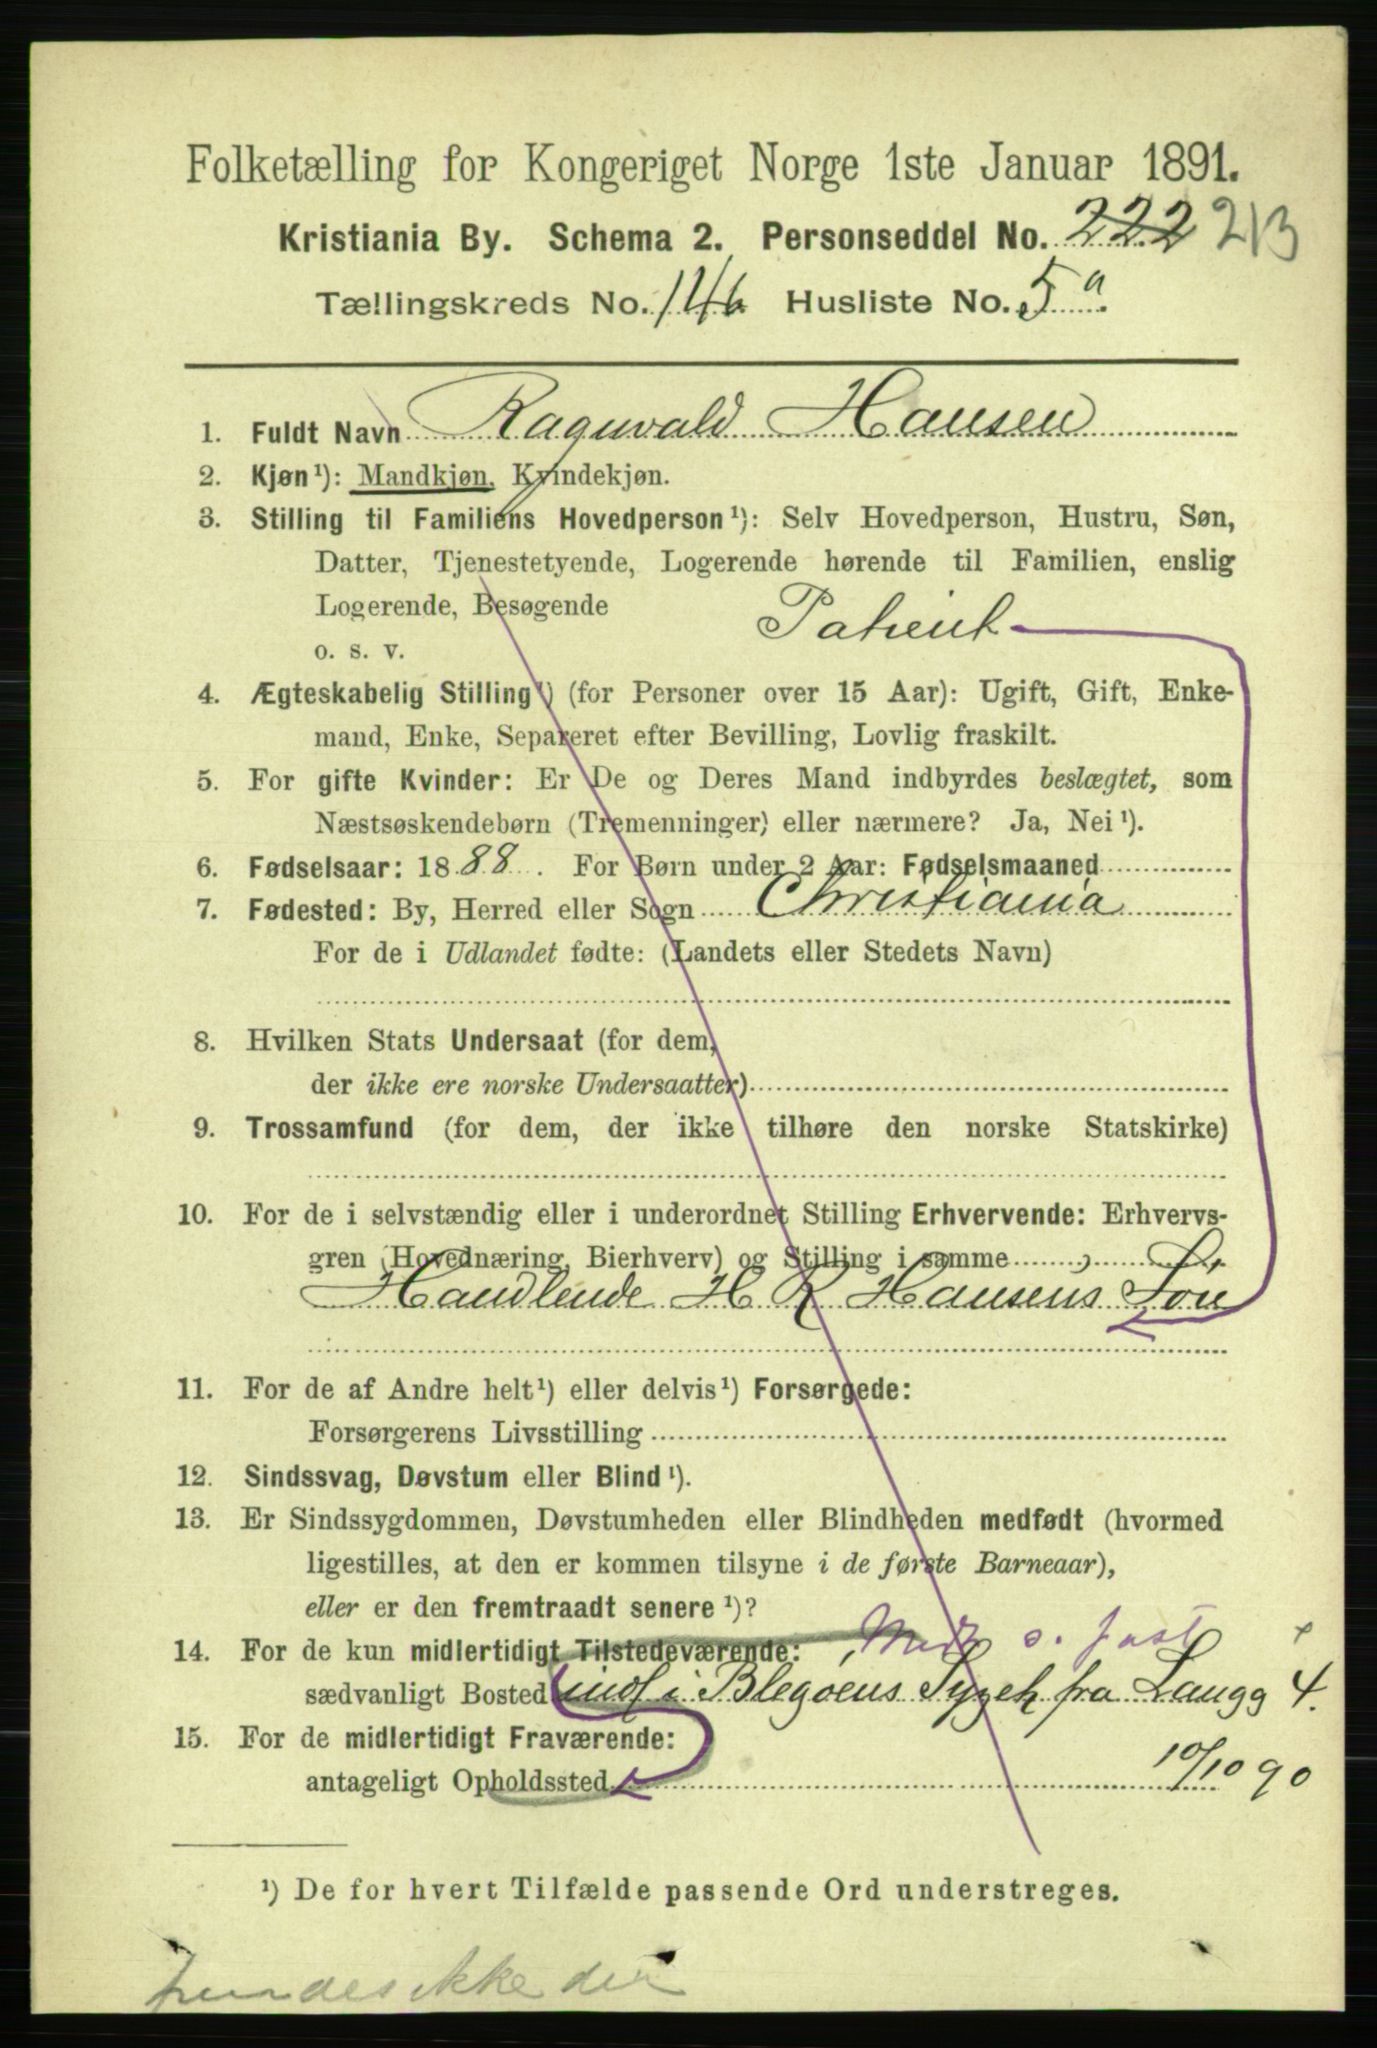 Folketælling for Kongeriget Norge 1ste Januar 1891.
Kristiania By. Schema 2. Personseddel No. 222 213
Tællingskreds No. 146 Husliste No. 5a
1. Fuldt Navn Ragnvald Hansen
2. Kjøn¹): Mandkjøn, Kvindekjøn.
3. Stilling til Familiens Hovedperson¹): Selv Hovedperson, Hustru, Søn,
Datter, Tjenestetyende, Logerende hørende til Familien, enslig
Logerende, Besøgende Patient
o. s. v.
4. Ægteskabelig Stilling¹) (for Personer over 15 Aar): Ugift, Gift, Enke-
mand, Enke, Separeret efter Bevilling, Lovlig fraskilt.
5. For gifte Kvinder: Er De og Deres Mand indbyrdes beslægtet, som
Næstsøskendebørn (Tremenninger) eller nærmere? Ja, Nei¹).
6. Fødselsaar: 1888. For Børn under 2 Aar: Fødselsmaaned
7. Fødested: By, Herred eller Sogn Christiania
For de i Udlandet fødte: (Landets eller Stedets Navn)
8. Hvilken Stats Undersaat (for dem,
der ikke ere norske Undersaatter)
9. Trossamfund (for dem, der ikke tilhøre den norske Statskirke)
10. For de i selvstændig eller i underordnet Stilling Erhvervende: Erhvervs-
gren (Hovednæring, Bierhverv) og Stilling i samme
Handlende H R Hansens Søn
11. For de af Andre helt¹) eller delvis¹) Forsørgede:
Forsørgerens Livsstilling
12. Sindssvag, Døvstum eller Blind¹).
13. Er Sindssygdommen, Døvstumheden eller Blindheden medfødt (hvormed
ligestilles, at den er kommen tilsyne i de første Barneaar),
eller er den fremtraadt senere¹)?
14. For de kun midlertidigt Tilstedeværende:
sædvanligt Bosted indl i Blegöens Sygeh fra Langg 4.
15. For de midlertidigt Fraværende:
antageligt Opholdssted 10/10 90
¹) De for hvert Tilfælde passende Ord understreges.
findes ikke der